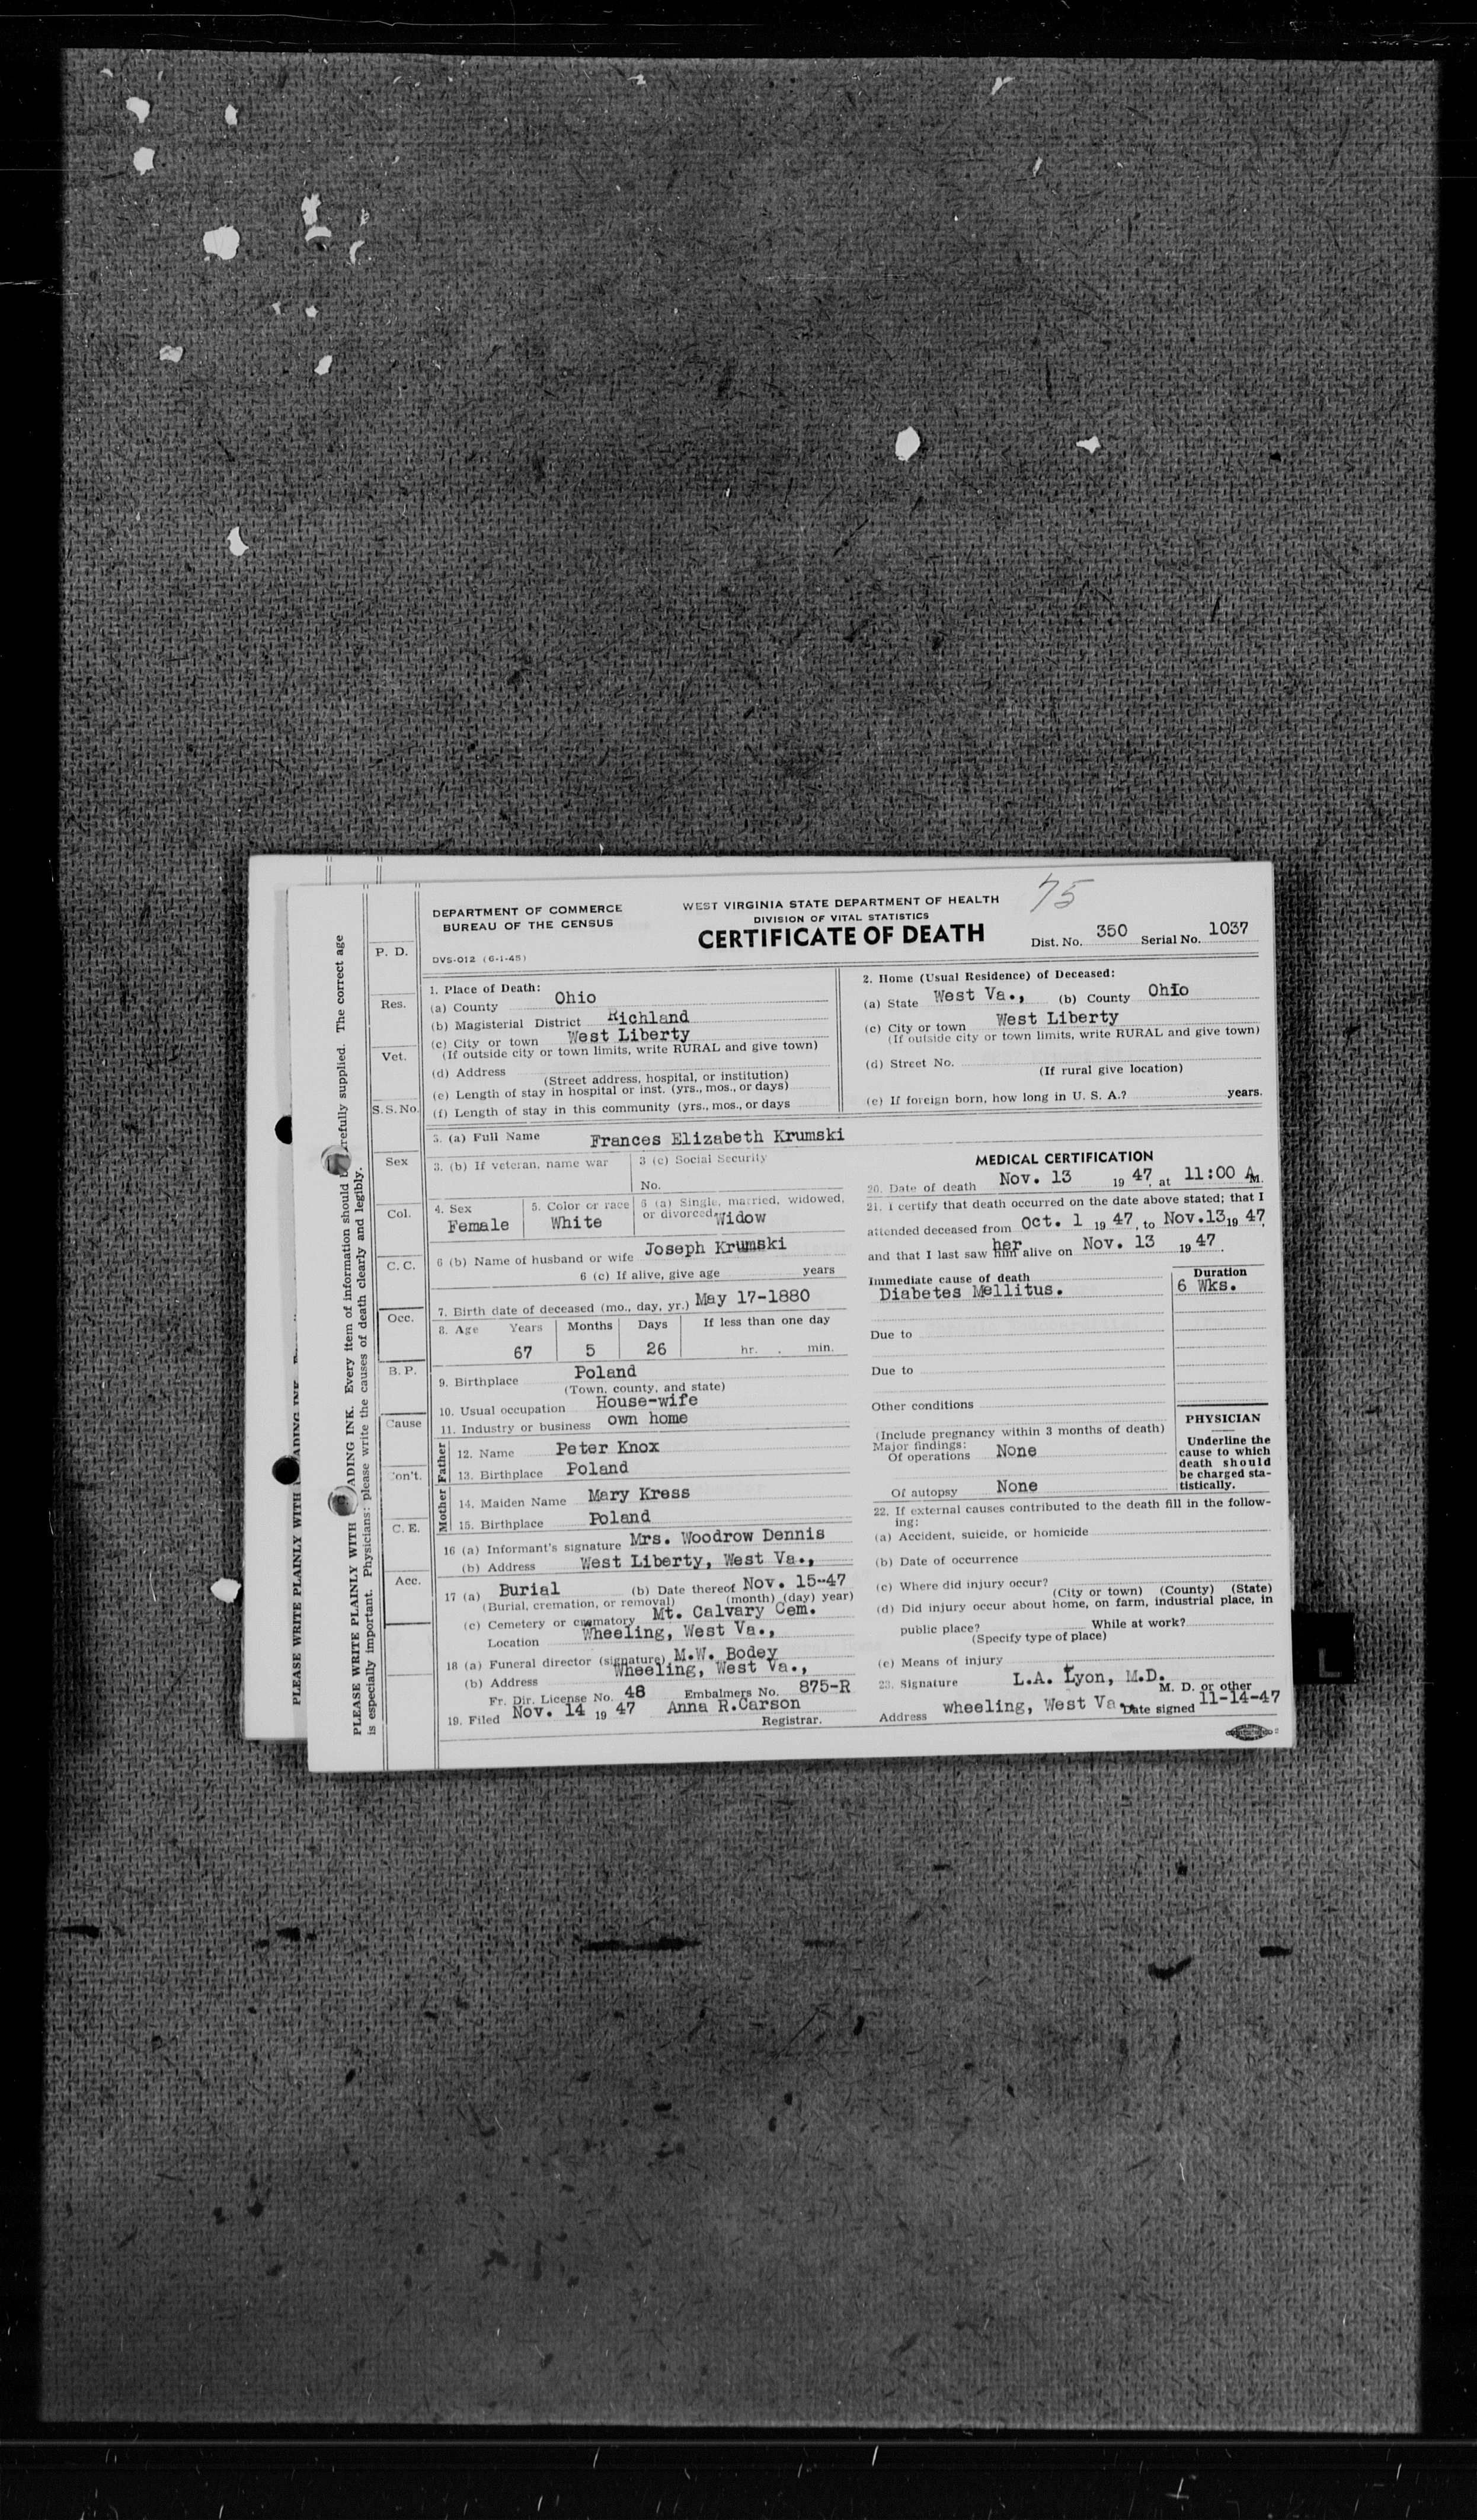 75
DEPARTMENT OF COMMERCE
BUREAU OF THE CENSUS
DVS-012 (6-1-45)
WEST VIRGINIA STATE DEPARTMENT OF HEALTH
DIVISION OF VITAL STATISTICS
CERTIFICATE OF DEATH
Dist. No. 350 Serial No. 1037
PLEASE WRITE PLAINLY WITH
PLEASE WRITE PLAINLY WITH ADING INK. Every item of information should refully supplied. The correct age
is especially important. Physicians: please write the causes of death clearly and legibly.
P. D.
Res.
Vet.
S.S. No.
Sex
Col.
C. C.
Occ.
B. P.
Cause
Con't.
C. E.
Acc.
1. Place of Death:
(a) County Ohio
(b) Magisterial District Richland
(c) City or town West Liberty
(If outside city or town limits, write RURAL and give town)
(d) Address
(Street address, hospital, or institution)
(e) Length of stay in hospital or inst. (yrs., mos., or days)
(f) Length of stay in this community (yrs., mos., or days
2. Home (Usual Residence) of Deceased:
(a) State West Va., (b) County Ohio
(c) City or town West Liberty
(If outside city or town limits, write RURAL and give town)
(d) Street No.
(If rural give location)
(e) If foreign born, how long in U. S. A.? years.
3. (a) Full Name Frances Elizabeth Krumski
3. (b) If veteran, name war
3 (c) Social Security
No.
4. Sex
Female
5. Color or race
White
6 (a) Single, married, widowed,
or divorced. Widow
6 (b) Name of husband or wife Joseph Krumski
6 (c) If alive, give age years
7. Birth date of deceased (mo., day, yr.) May 17-1880
8. Age Years Months Days If less than one day
67 5 26 hr. . min.
9. Birthplace Poland
(Town, county, and state)
10. Usual occupation House-wife
11. Industry or business own home
Father
12. Name Peter Knox
13. Birthplace Poland
Mother
14. Maiden Name Mary Kress
15. Birthplace Poland
16 (a) Informant's signature Mrs. Woodrow Dennis
(b) Address West Liberty, West Va.,
17 (a) Burial (b) Date thereof Nov. 15-47
(Burial, cremation, or removal) (month) (day) year)
(c) Cemetery or crematory Mt. Calvary Cem.
Location Wheeling, West Va.,
18 (a) Funeral director (signature) M.W. Bodey
(b) Address Wheeling, West Va.,
Fr. Dir. License No. 48 Embalmers No. 875-R
19. Filed Nov. 14 19 47 Anna R.Carson
Registrar.
MEDICAL CERTIFICATION
20. Date of death Nov. 13 19 47, at 11:00 A.M.
21. I certify that death occurred on the date above stated; that I
attended deceased from Oct. 1 19 47, to Nov.13 19 47,
and that I last saw him her alive on Nov. 13 19 47.
Immediate cause of death
Diabetes Mellitus.
Duration
6 Wks.
Due to
Due to
Other conditions
(Include pregnancy within 3 months of death)
Major findings:
Of operations None
Of autopsy None
PHYSICIAN
Underline the
cause to which
death should
be charged sta-
tistically.
22. If external causes contributed to the death fill in the follow-
ing:
(a) Accident, suicide, or homicide
(b) Date of occurrence
(c) Where did injury occur?
(City or town) (County) (State)
(d) Did injury occur about home, on farm, industrial place, in
public place? While at work?
(Specify type of place)
(e) Means of injury
23. Signature L.A. Lyon, M.D.
M. D. or other
Address Wheeling, West Va. Date signed 11-14-47
L